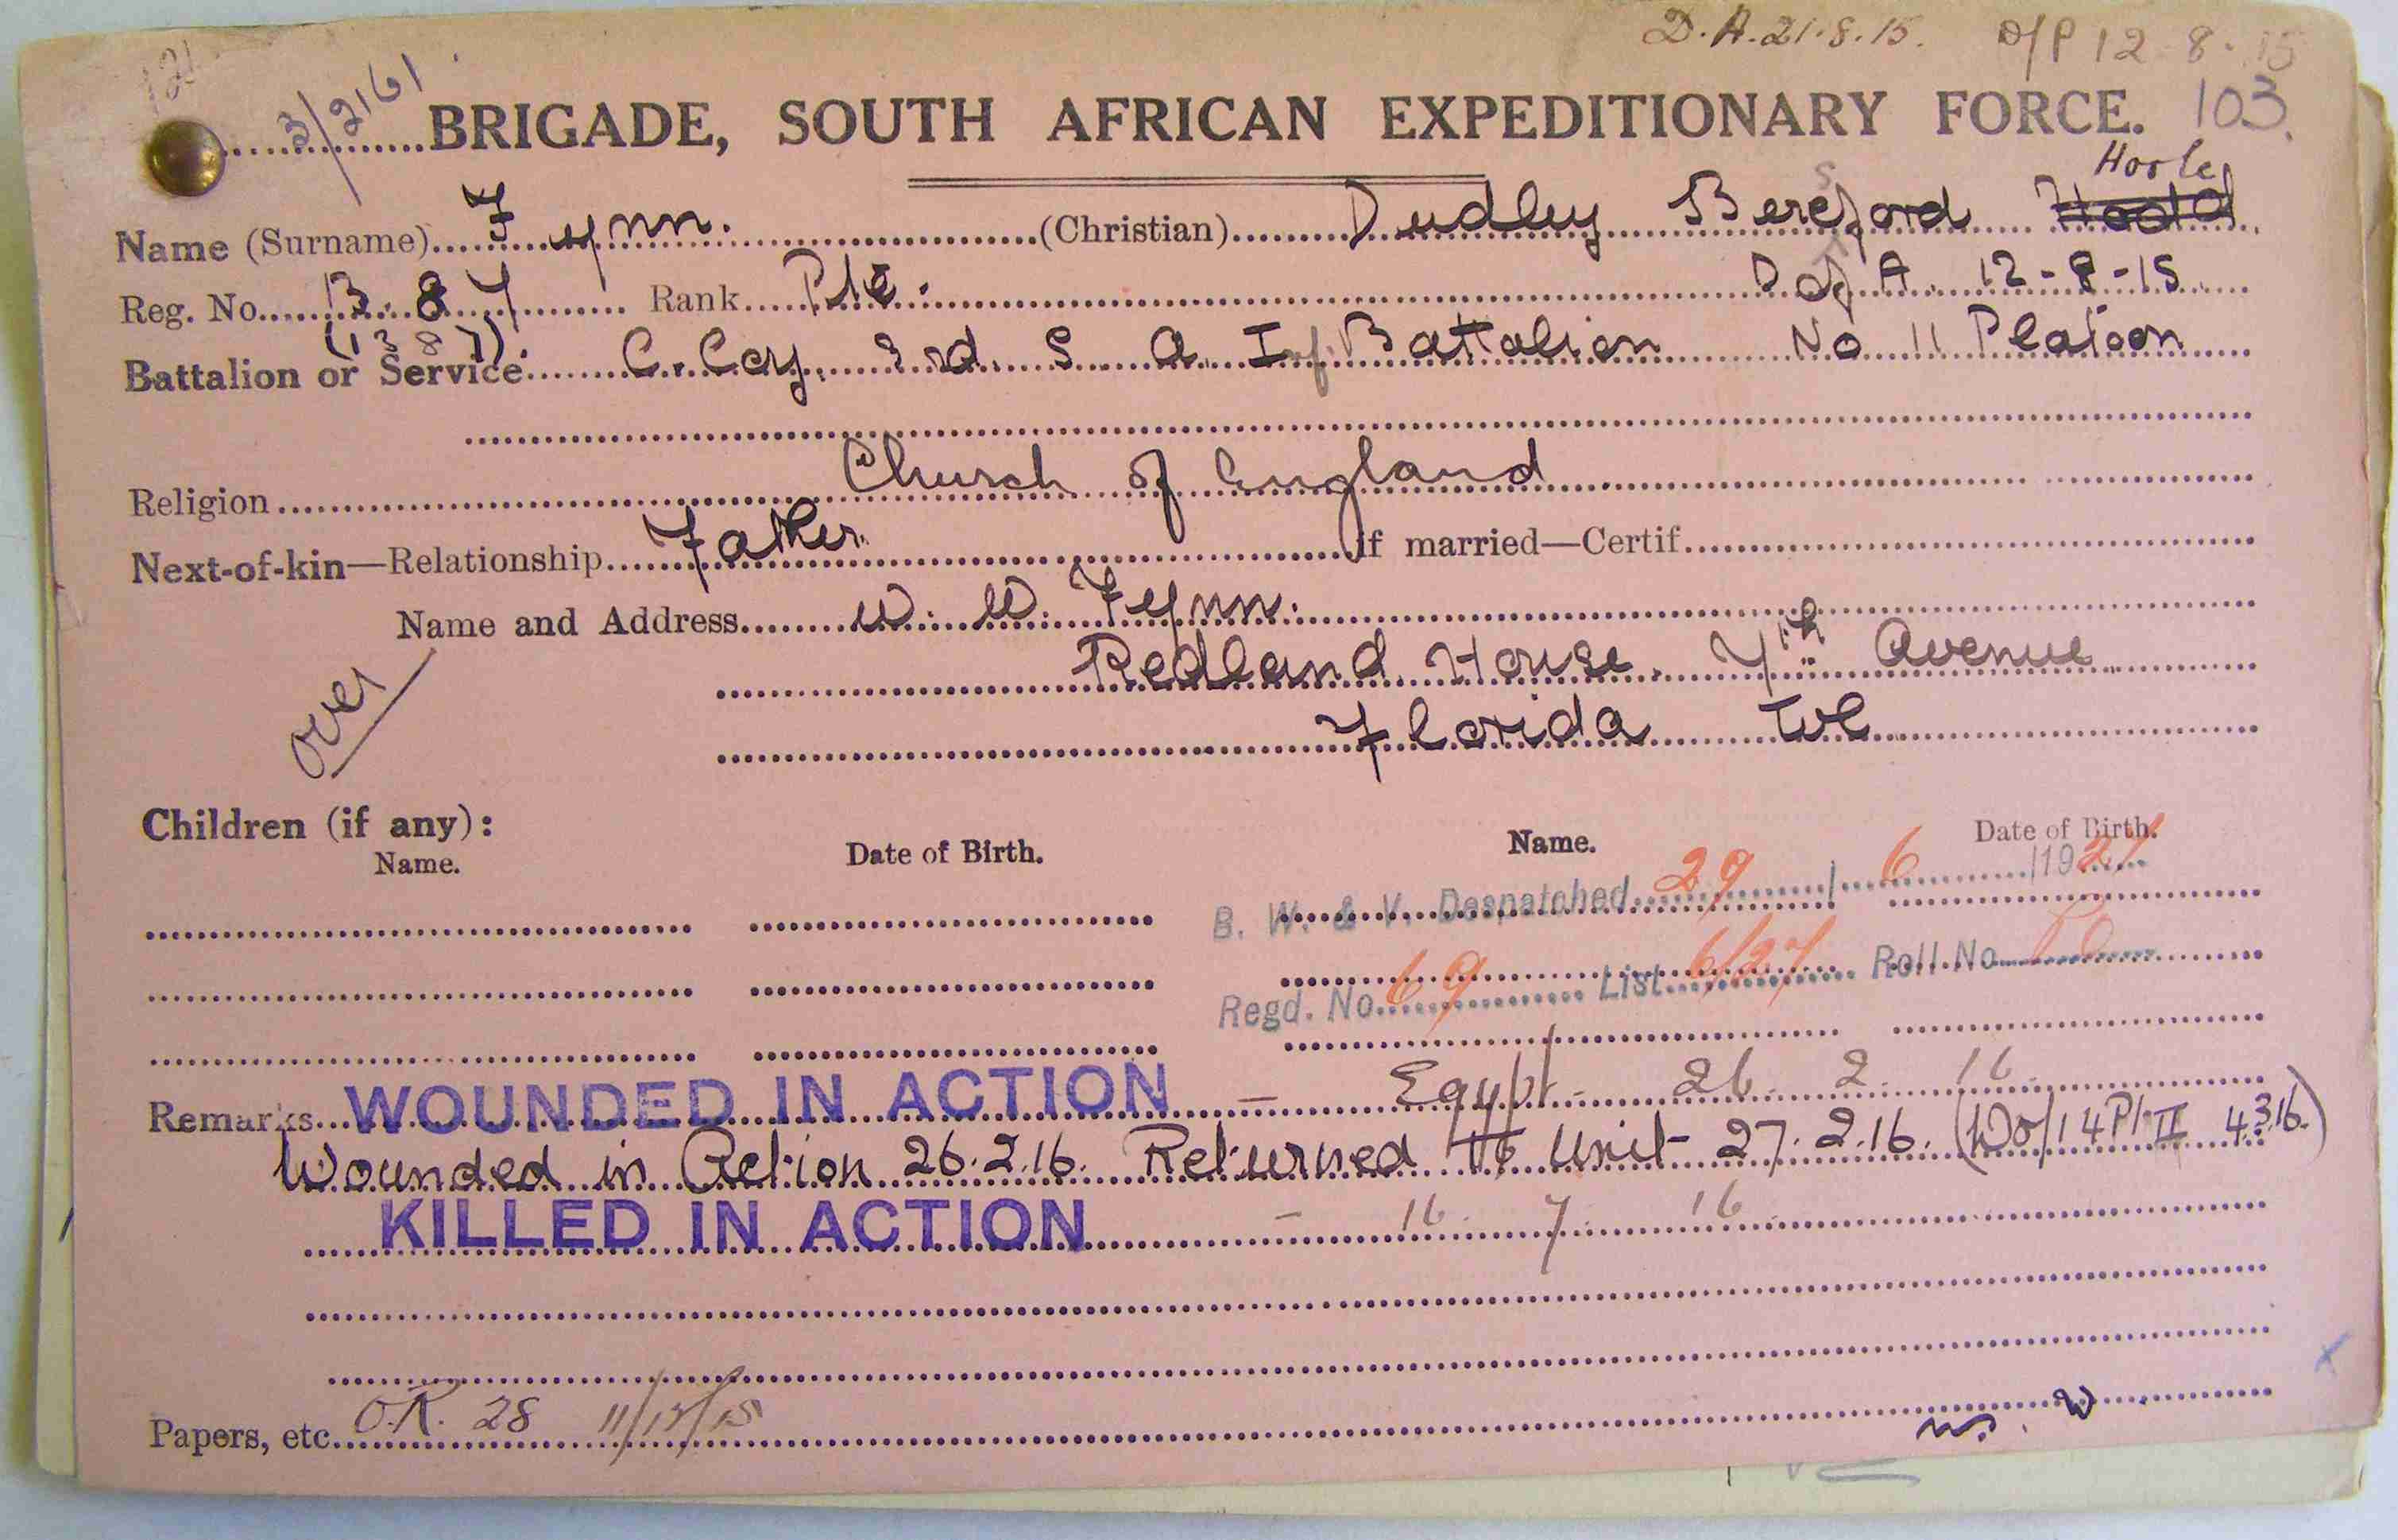 D.A. 21.8.15. D/P 12 8.15
121
3/2161 BRIGADE, SOUTH AFRICAN EXPEDITIONARY FORCE. 103.
Hoole
Name (Surname) Fynn. (Christian) Dudley Beresford
Reg. No. B. 87 Rank Pte. D of A. 12-8-15
(1387).
Battalion or Service C. Coy. 3rd S. A. Inf Battalion No 11 Platoon
Religion Church of England
Next-of-kin—Relationship Father If married—Certif.
Name and Address W. W. Fynn.
Redland House. 7th Avenue
Florida Tvl
Over
Children (if any):
Name. Date of Birth. Name. Date of Birth.
B. W. & V. Despatched 29 / 6 /1921
Regd. No. 69 List 6/27 Roll No.
Remarks WOUNDED IN ACTION — Egypt 26 2 16
Wounded in Action 26.2.16. Returned to Unit 27.2.16. (Do/14 Pt II 4.3.16.)
KILLED IN ACTION — 16 7 16
Papers, etc. O.R. 28 11/12/15